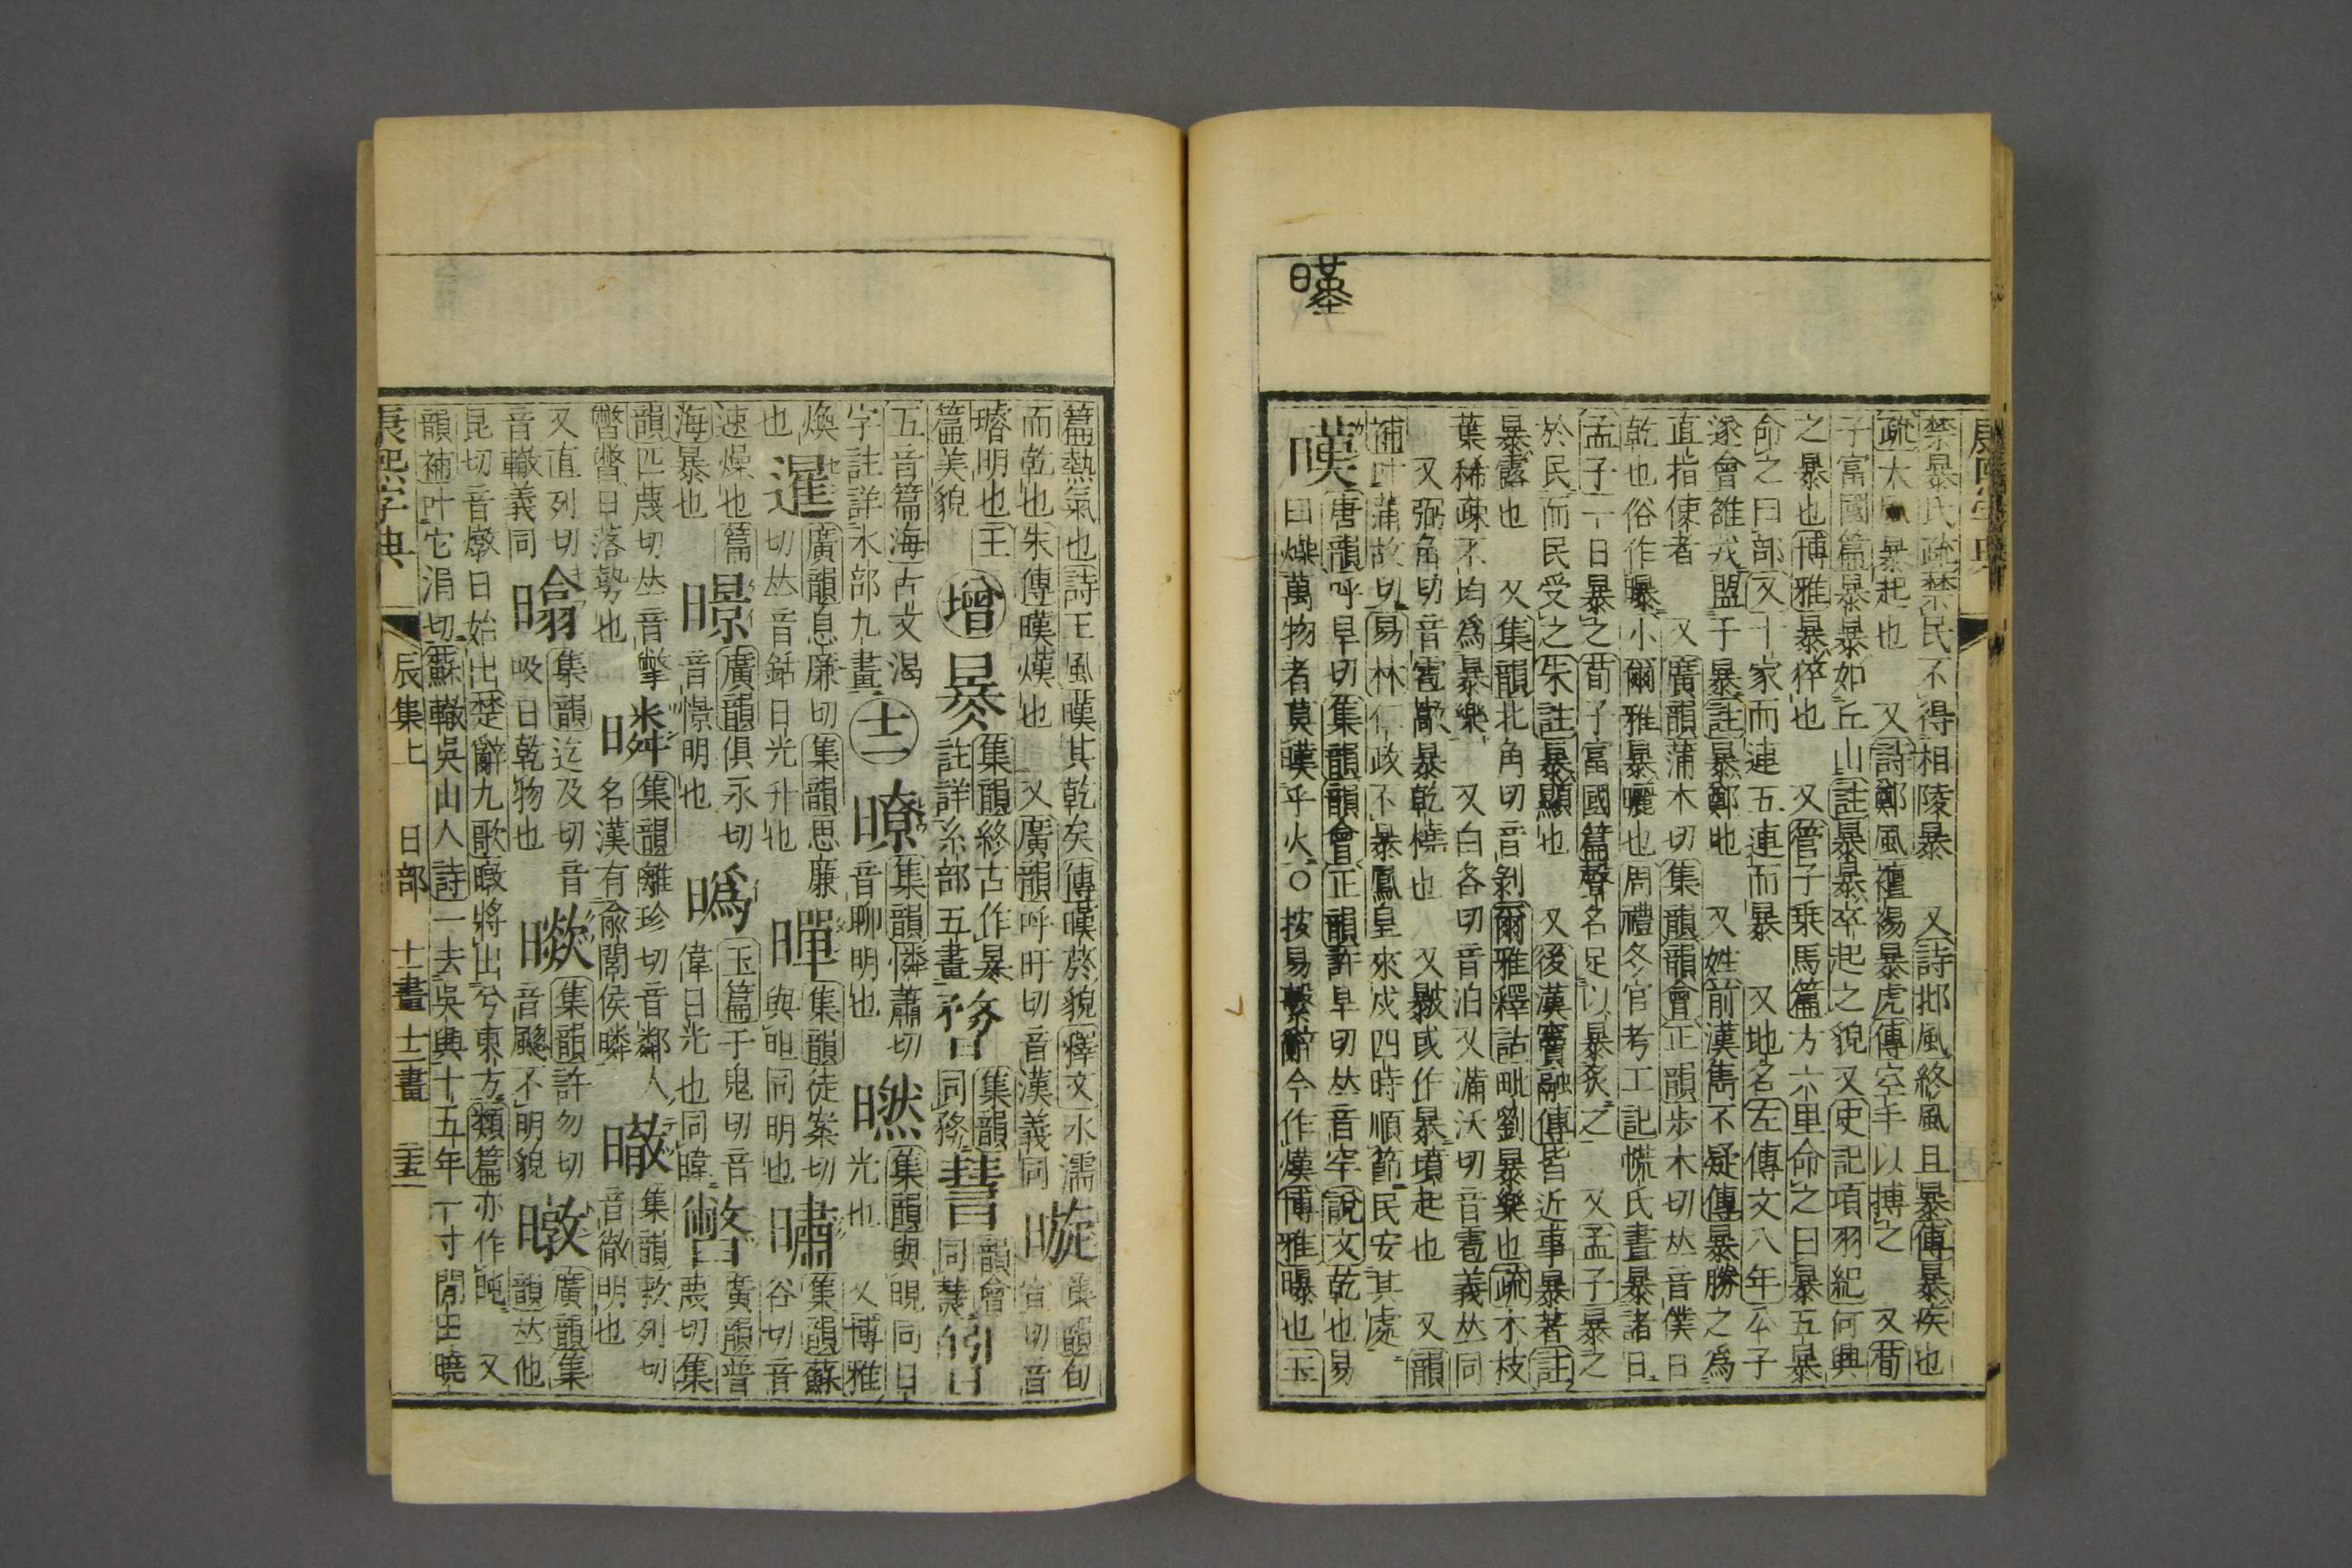 暵
康熙字典
禁暴氏疏禁民不得相陵暴 又詩邶風終風且暴傳暴疾也
疏大風暴起也 又詩鄭風襢裼暴虎傳空手以搏之 又荀
子富國篇暴暴如丘山註暴暴卒起之貌又史記項羽紀何興
之暴也博雅暴猝也 又管子乗馬篇方六里命之曰暴五暴
命之曰部又十家而連五連而暴 又地名左傳文八年公子
遂會雒戎盟于暴註暴鄭地 又姓前漢雋不疑傳暴勝之爲
直指使者 又廣韻蒲木切集韻韻會正韻步木切𠀤音僕日
乾也俗作曝小爾雅暴曬也周禮冬官考工記㡆氏晝暴諸日
孟子一日暴之荀子富國篇聲名足以暴炙之 又孟子暴之
於民而民受之朱註暴顯也 又後漢竇融傳皆近事暴著註
暴露也 又集韻北角切音剝爾雅釋詁毗劉暴樂也疏木枝
葉稀疎不均爲暴樂 又白各切音泊又蒲沃切音雹義𠀤同
又弼角切音雹歊暴乾橈也 又㿺或作暴墳起也 又韻
補叶蒲故切易林仁政不暴鳳皇來成四時順節民安其處
暵 唐韻呼旱切集韻韻會正韻許旱切𠀤音罕說文乾也易
曰燥萬物者莫暵乎火○按易繫辭今作熯博雅曝也玉
篇熱氣也詩王風暵其乾矣傳暵菸貌釋文水濡
而乾也朱傳暵熯也 又廣韻呼旰切音漢義同 暶 集韻旬
宣切音
璿明也玉
篇美貌 增 㬥 集韻終古作㬥
註詳糸部五畫 㬔 集韻
同務 暳 韻會
同慧
五音篇海古文渴
字註詳水部九畫 十二 暸 集韻憐蕭切
音聊明也 㬗 集韻與晛同日
光也 又博雅
煥
也 暹 廣韻息廉切集韻思廉
切𠀤音銛日光升也 暺 集韻徒案切
與皅同明也 㬘 集韻蘇
谷切音
速燥也篇
海暴也 暻 廣韻俱永切
音憬明也 㬙 玉篇于鬼切音
偉日光也同暐 暼 廣韻普
蔑切集
韻匹蔑切𠀤音擎
暼暼日落勢也 暽 集韻離珍切音鄰人
名漢有俞閭侯暽 㬚 集韻敕列切
音徹明也
又直列切
音轍義同 㬛 集韻迄及切音
吸日乾物也 㬜 集韻許勿切
音颮不明貌 暾 廣韻集
韻𠀤他
昆切音燉日始出楚辭九歌暾將出兮東方類篇亦作旽 又
韻補叶它涓切蘇轍吳山人詩一去吳興十五年一寸閒田曉
康熙字典 辰集上 日部 十一畫 十二畫 三十五